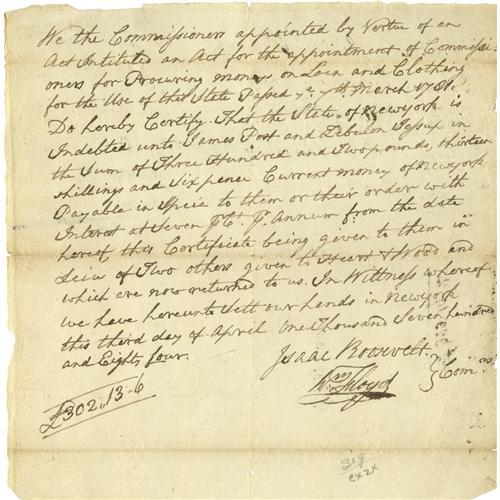 We the Commissioners appointed by Vertue of an
Act Intituled an Act for the appointment of Commissi-
oners for Procuring money on Loan and Clothing
for the Use of this State Passed ye 9th March 1781.
Do hereby Certify. That the State of Newyork is
Indebted unto James Post and Zebulon Jessup in
the Sum of Three Hundred and Two pounds, thirteen
shillings and Six pence Current money of Newyork
Payable in Specie to them or their order with
Interest at Seven P Ct P. Annum from the date
hereof, this Certificate being given to them in
Leiu of Two others given to Heart & Wood and
which are now returned to us. In Wittness whereof
we have hereunto Sett our hands in Newyork
this third day of April One Thousand Seven hundred
and Eighty four.
Isaac Roosevelt.
Wm Floyd } Com.rs
£302.13-6
Sig
ex2x